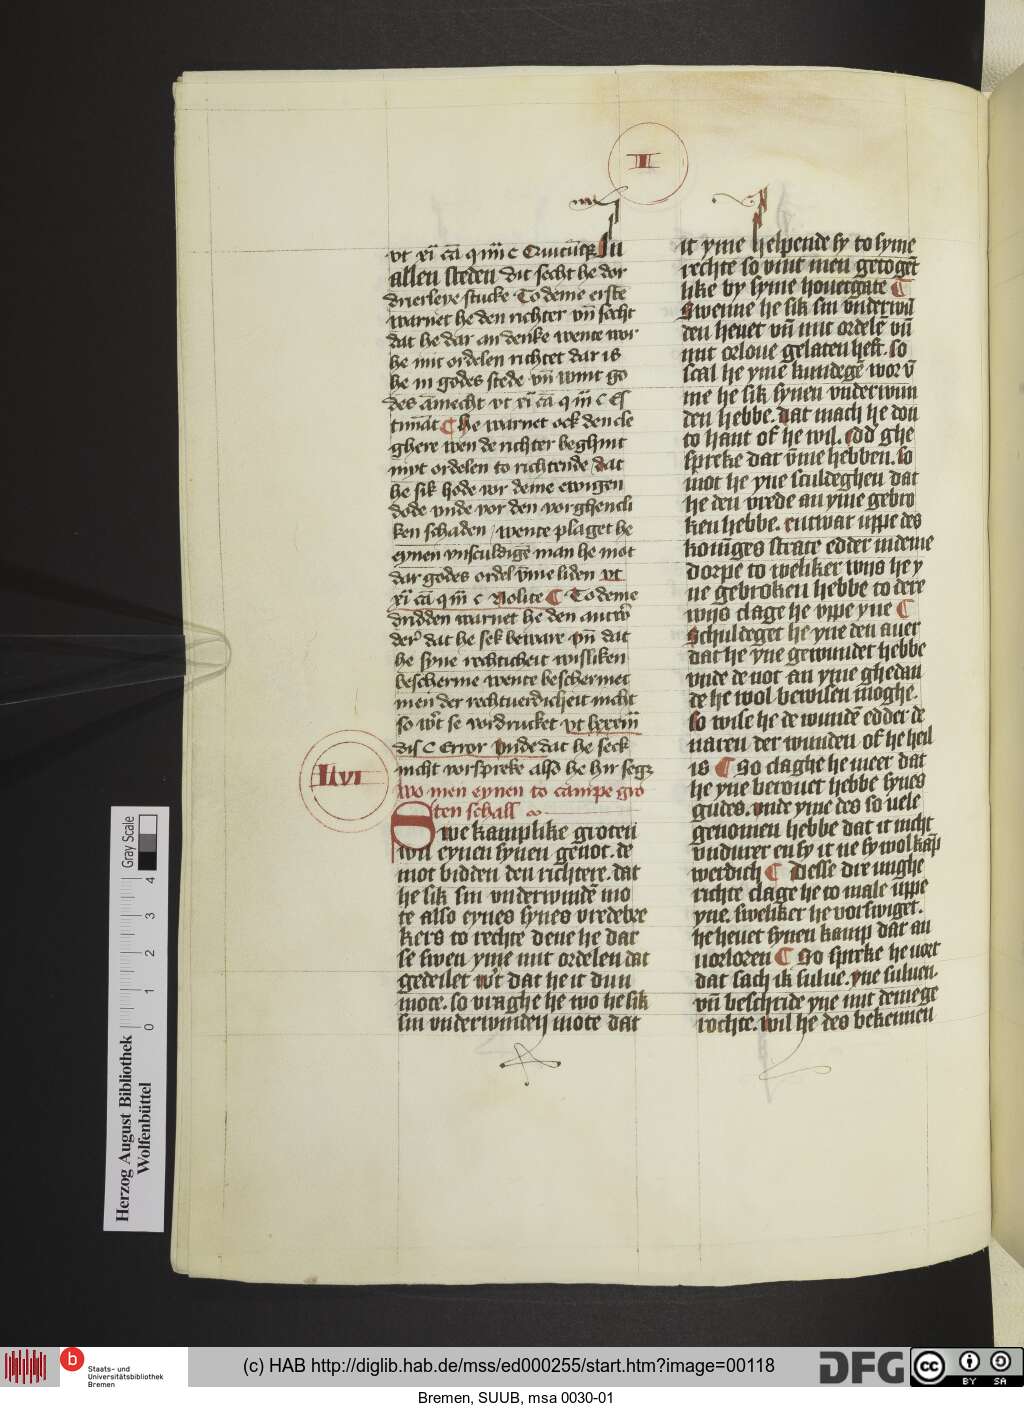 I
vt xi cā q iii c Quicūqz In
allen steden dit secht he dor
drierleye stucke To deme erste
warnet he den richter vn̄ secht
dat he dar an denke wente wor
he mit ordelen richtet dar is
he in godes stede vn̄ wint go
des āmecht vt xi cā q iii c Ex
timāt he warnet ock den cle
ghere wen de richter beghint
myt ordelen to richtende dat
he sik hode vor deme ewigen
dode vnde vor den vorghencli
ken schaden wente plaget he
eynen vnsculdigē man he mot
dar godes ordel vm̄e liden vt
xi cā q iii c Nolite To deme
dridden warnet he den antw̄
der dat he sek beware vn̄ dat
he syne rechticheit wisliken
bescherme wente beschermet
men der rechtuerdicheit nicht
so wt se vordrucket vt lxxxiii
dis c Error Vnde dat he seck
nicht vorspreke also he hir segz
LLVI
wo men eynen to campe gro
ten schall
Swe kamplike groten
wil eynen synen genot. de
mot bidden den richtere. dat
he sik sin vnderwindē mo
te also eynes synes vredebre
kers to rechte dene he dar
se swen yme mit ordelen dat
gedeilet wt dat he it dun
mote. so vraghe he wo he sik
sin vnderwinden mote dat
it yme helpende sy to syme
rechte so vint men getoget
like by syme houetgate
Swenne he sik sin vnderwū
den heuet vn̄ mit ordelē vn̄
mit orloue gelaten heft. so
scal he yme kundegē wor v̄
me he sik synen vnderwun
den hebbe. dat mach he don
to hant of he wil. edd ghe
spreke dat v̄me hebben. so
mot he yne sculdeghen dat
he den vrede an yme gebro
ken hebbe. entwar uppe des
koninges strate edder indeme
dorpe to weliker wijs he y
ne gebroken hebbe to dere
wijs clage he vppe yne
Schuldeget he yne den auer
dat he yne gewundet hebbe
vnde de not an yme ghedan
de he wol bewisen moghe.
so wise he de wundē edder de
naren der wunden of he heil
is So claghe he meer dat
he yne berouet hebbe synes
gudes. vnde yme des so uele
genomen hebbe dat it nicht
vndurer en sy it ne sy wol kāp
werdich Desse dre unghe
richte clage he to male uppe
yne. sweliker he vorswiget.
he heuet synen kamp dar an
uorloren So spreke he uort
dat sach ik sulue. yne suluen.
vn̄ beschride yne mit deme ge
rochte. wil he des bekennen
Gray Scale
0 1 2 3 4
Herzog August Bibliothek
Wolfenbüttel
Staats- und
Universitätsbibliothek
Bremen
(c) HAB http://diglib.hab.de/mss/ed000255/start.htm?image=00118
DFG
cc BY SA
Bremen, SUUB, msa 0030-01